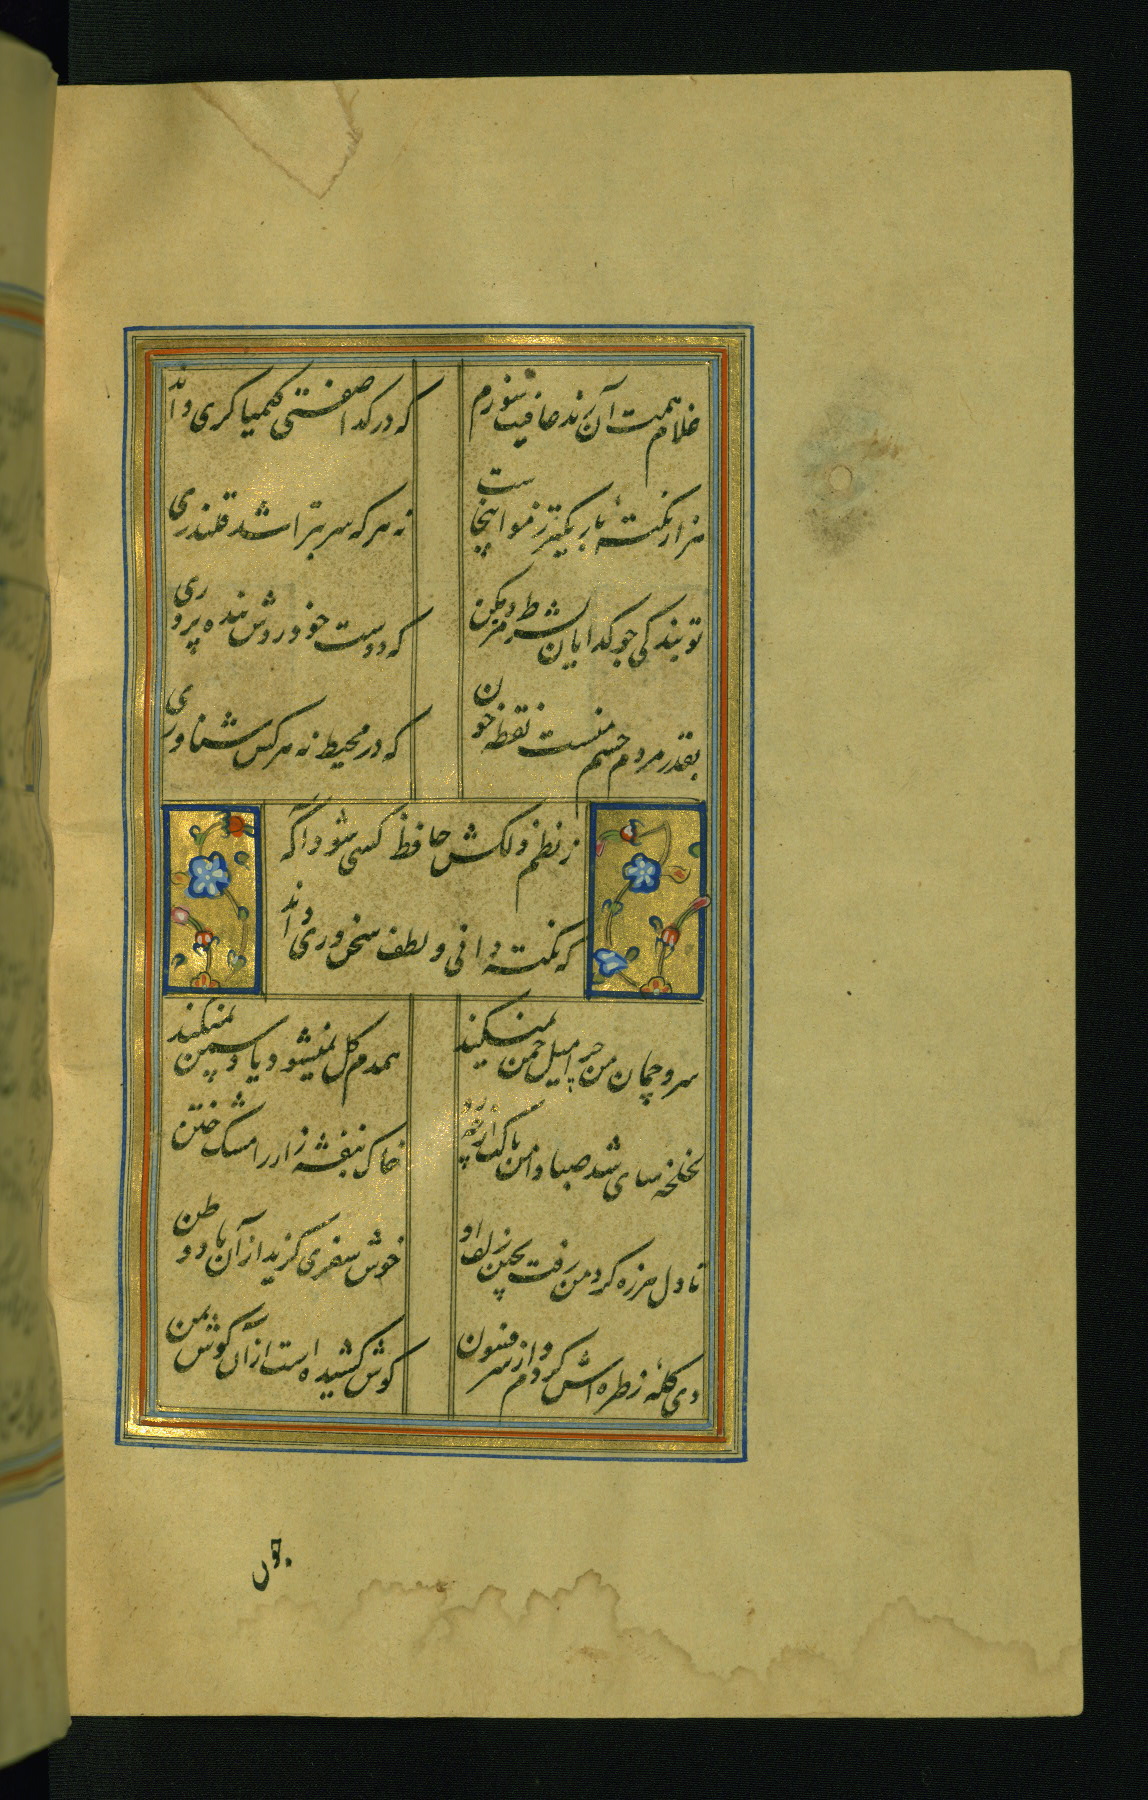 غلام همت آن رند عافیت سوزم
که در گدا صفتی کیمیا کری داند
هزار نکتهٔ باریکتر ز مو اینجاست
نه هر که سر بتراشد قلندری
تو بندگی چو گدایان بشرط مزد مکن
که دوست خود روش بنده پروری
بقدر مردم چشم منست نقطه خون
که در محیط نه هر کس شناوری
ز نظم دلکش حافظ کسی شود آگه
که نکته دانی و لطف سخن وری داند
سرو چمان من چرا میل چمن نمیکند
همدم گل نمیشود یاد سمن نمیکند
لخلخه سای شد صبا دامن پاکت از چه رو
خاک بنفشه زار را مشک ختن
تا دل هرزه کرد من رفت بچین زلف او
خوش سفری گزید از آن یاد وطن
دی گلهٔ ز طره اش کردم و از سر فسون
گوش کشیده است از آن گوش بمن
چون